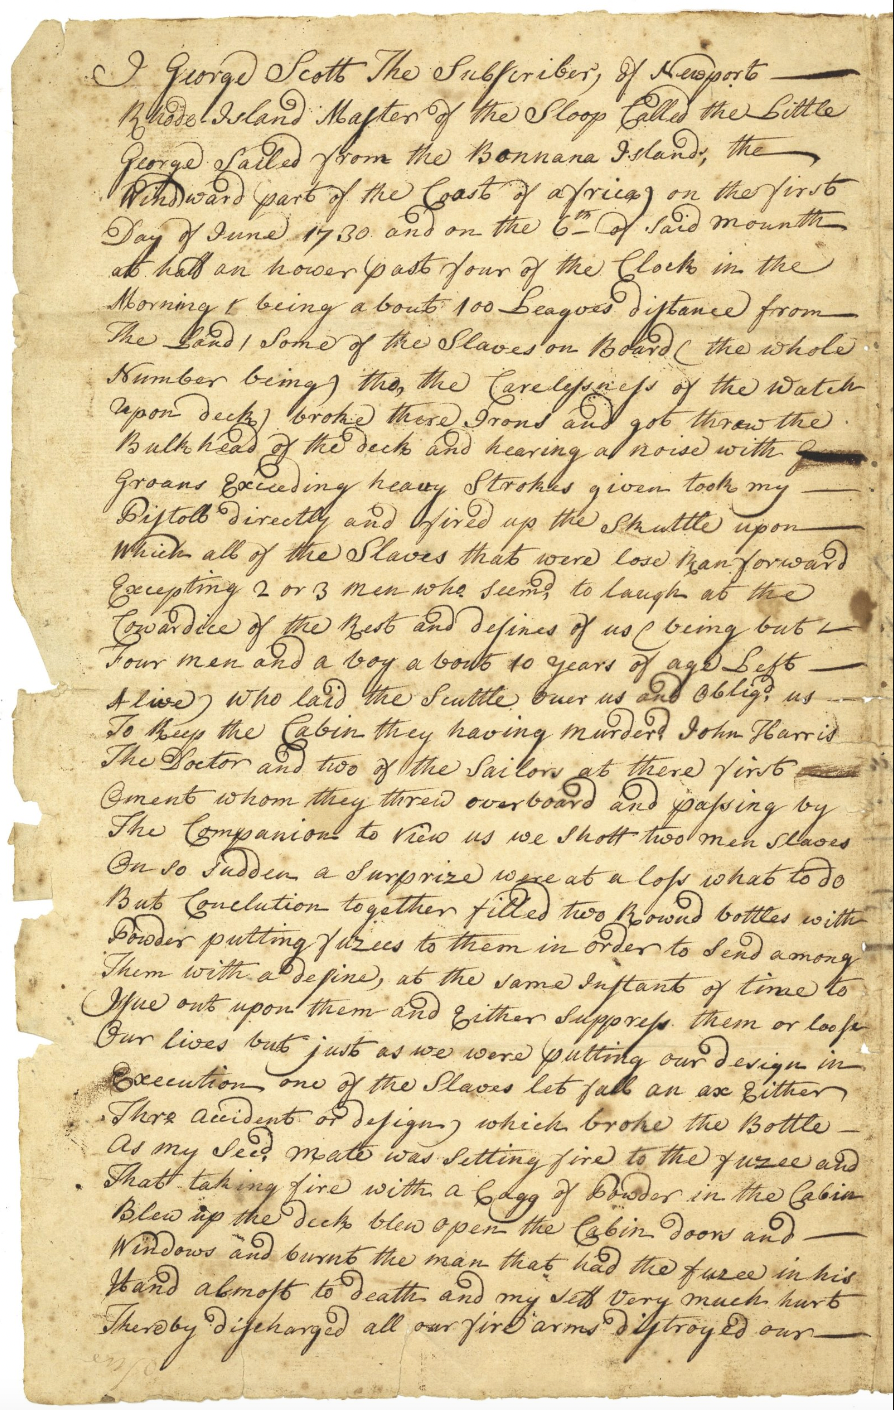 I George Scott The Subscriber, of Newport —
Rhode Island Master of the Sloop Called the Little
George Sailed from the Bonnana Islands, the —
Windward part of the Coast of africa) on the first
Day of June 1730 and on the 6th of Said mounth
at half an hower past four of the Clock in the
Morning & being about 100 Leagues distance from
The Land / Some of the Slaves on Board ( the whole
Number being) tho, the Carelessness of the watch
upon deck) broke there Irons and got threw the
Bulk head of the deck and hearing a noise with
Groans Exceeding heavy Strokes given took my —
Pistoll directly and fired up the Skuttle upon —
Which all of the Slaves that were lose Ran forward
Excepting 2 or 3 men who seem'd to laugh at the
Cowardice of the Rest and defines of us ( being but —
Four men and a boy about 10 years of age Left —
Alive) who laid the Scuttle over us and Oblig'd us —
To Keep the Cabin they having murder'd John Harris
The Doctor and two of the Sailors at there first
Oment whom they threw overboard and passing by
The Companion to view us we Shott two men Slaves
On so sudden a Surprize were at a loss what to do
But Conclution together filled two Rownd bottles with
Powder putting fuzees to them in order to Send among
Them with a desine, at the same Instant of time to
Issue out upon them and Either Suppress them or loose
Our lives but just as we were putting our design in
Execution one of the Slaves let fall an ax Either
Thro accident or design) which broke the Bottle —
As my Secd mate was Setting fire to the fuzee and
That taking fire with a Cagg of Powder in the Cabin
Blew up the deck blew open the Cabin doors and —
Windows and burnt the man that had the fuzee in his
Hand almost to death and my Self very much hurt
Thereby discharged all our fire arms distroyed our —